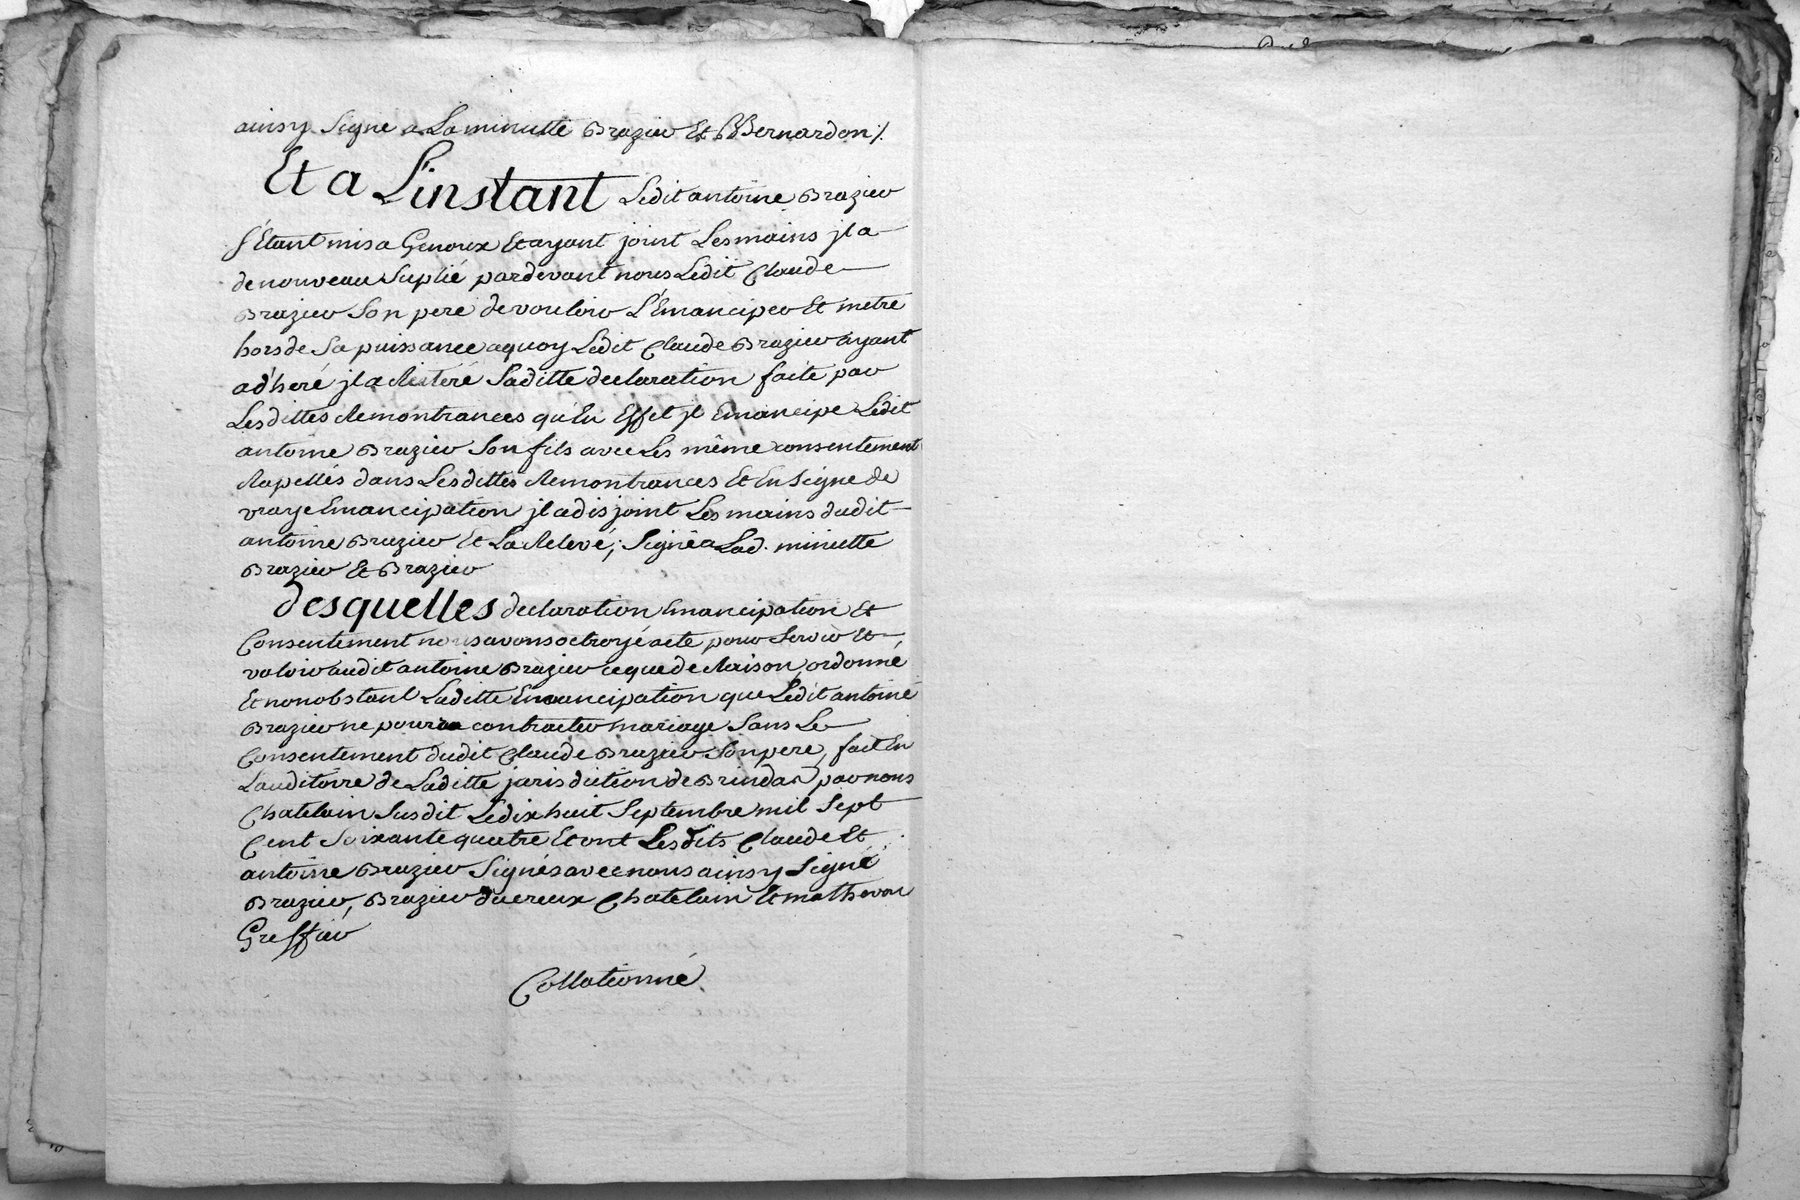 ainsy Signe a La minutte Brazier Et BBernardon /.
Et a L'instant Ledit antoine Brazier
S'Etant mis a Genoux Et ayant joint Les mains jl a
de nouveau Suplié pardevant nous Ledit Claude
Brazier Son pere de vouloir L'Emanciper Et metre
hors de Sa puissance a quoy Ledit Claude Brazier ayant
adheré jl a Reiteré Saditte declaration faite par
Lesdittes Remontrances qu'En Effet jl Emancipe Ledit
antoine Brazier Son fils avec Les même consentement
Rapellés dans Lesdittes Remontrances Et En Signe de
vraye Emancipation jl a disjoint Les mains dudit
antoine Brazier Et La Relevé; Signé a Lad. minutte
Brazier Et Brazier
desquelles declaration Emancipation Et
Consentement nous avons octroyé acte pour Servir Et
valoir audit antoine Brazier ce que de Raison, ordonné
Et nonobstant Laditte Emancipation que Ledit antoine
Brazier ne pourra contracter mariage Sans Le
Consentement dudit Claude Brazier Son pere, fait En
L'auditoire de Laditte jurisdiction de Brindas par nous
Chatelain Susdit Le dix huit Septembre mil Sept
Cent Soixante quatre Et ont Lesdits Claude Et
antoine Brazier Signés avec nous ainsy Signé
Brazier, Brazier ducreux Chatelain Et mathevon
Greffier
Collationné